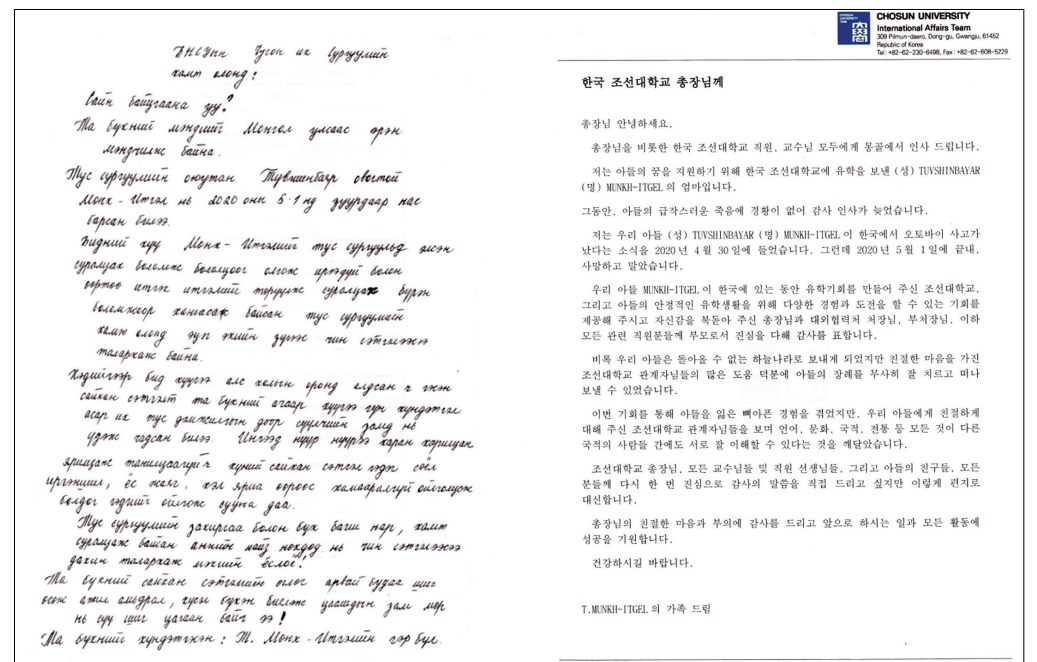 БНСУ-ын Чусон их сургуулийн
хамт олонд:
Сайн байцгаана уу?
Та бүхний мэндийг Монгол улсаас эрэн
мэндчилж байна.
Тус сургуулийн оюутан Түвшинбаяр овогтой
Мөнх-Итгэл нь 2020 оны 5.1 нд зуурдаар нас
барсан билээ.
Бидний хүү Мөнх-Итгэлийг тус сургуульд элсэн
суралцах боломж бололцоог олгож ирээдүй болон
өөртөө итгэх итгэлийг төрүүлж суралцах бүрэн
боломжоор хангасан байсан тус сургуулийн
хамт олонд эцэг эхийн зүгээс чин сэтгэлээсээ
талархаж байна.
Хэдийгээр бид хүүгээ алс холын оронд алдсан ч гэсэн
сайхан сэтгэлт та бүхний ачаар хүүгээ гүн хүндэтгэл
асар их тус дэмжлэгийн доор сүүлчийн замд нь
үдэж гаргасан билээ. Ингээд нүүр нүүрээ харан харилцан
ярилцаж танилцаагүй ч хүний сайхан сэтгэл гэдэг соёл
иргэншил, ёс жаяг, хэл яриа өөрөөс хамааралгүй ойлголцож
болдог гэдгийг ойлгож сууна даа.
Тус сургуулийн захиргаа болон бүх багш нар, хамт
суралцаж байсан ангийн найз нөхдөд нь чин сэтгэлээсээ
дахин талархаж мэхийн ёслоё!
Та бүхний сайхан сэтгэлийн өглөг арвай будаа шиг
өсөж ажил амьдрал, хүсэн бүхэн биелэж цаашдын зам мөр
нь сүү шиг цагаан байг ээ!
Та бүхнийг хүндэтгэсэн: Т. Мөнх-Итгэлийн гэр бүл.
CHOSUN UNIVERSITY
International Affairs Team
309 Pilmun-daero, Dong-gu, Gwangju, 61452
Republic of Korea
Tel:+82-62-230-6498, Fax:+82-62-608-5229
한국 조선대학교 총장님께
총장님 안녕하세요.
총장님을 비롯한 한국 조선대학교 직원, 교수님 모두에게 몽골에서 인사 드립니다.
저는 아들의 꿈을 지원하기 위해 한국 조선대학교에 유학을 보낸 (성) TUVSHINBAYAR
(명) MUNKH-ITGEL의 엄마입니다.
그동안, 아들의 급작스러운 죽음에 경황이 없어 감사 인사가 늦었습니다.
저는 우리 아들 (성) TUVSHINBAYAR (명) MUNKH-ITGEL이 한국에서 오토바이 사고가
났다는 소식을 2020년 4월 30일에 들었습니다. 그런데 2020년 5월 1일에 끝내,
사망하고 말았습니다.
우리 아들 MUNKH-ITGEL이 한국에 있는 동안 유학기회를 만들어 주신 조선대학교,
그리고 아들의 안정적인 유학생활을 위해 다양한 경험과 도전을 할 수 있는 기회를
제공해 주시고 자신감을 북돋아 주신 총장님과 대외협력처 처장님, 부처장님, 이하
모든 관련 직원분들께 부모로서 진심을 다해 감사를 표합니다.
비록 우리 아들은 돌아올 수 없는 하늘나라로 보내게 되었지만 친절한 마음을 가진
조선대학교 관계자님들의 많은 도움 덕분에 아들의 장례를 무사히 잘 치르고 떠나
보낼 수 있었습니다.
이번 기회를 통해 아들을 잃은 뼈아픈 경험을 겪었지만, 우리 아들에게 친절하게
대해 주신 조선대학교 관계자님들을 보며 언어, 문화, 국적, 전통 등 모든 것이 다른
국적의 사람들 간에도 서로 잘 이해할 수 있다는 것을 깨달았습니다.
조선대학교 총장님, 모든 교수님들 및 직원 선생님들, 그리고 아들의 친구들, 모든
분들께 다시 한 번 진심으로 감사의 말씀을 직접 드리고 싶지만 이렇게 편지로
대신합니다.
총장님의 친절한 마음과 부의에 감사를 드리고 앞으로 하시는 일과 모든 활동에
성공을 기원합니다.
건강하시길 바랍니다.
T.MUNKH-ITGEL의 가족 드림